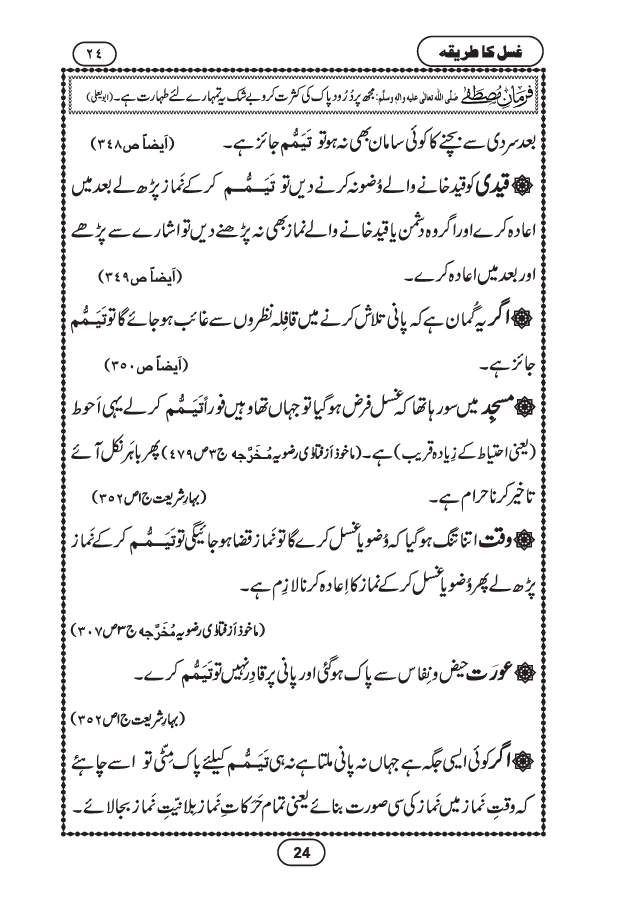 غسل کا طریقہ
٢٤
فرمانِ مصطفٰے صلی اللہ تعالٰی علیہ والہٖ وسلم: مجھ پر دُرُود پاک کی کثرت کرو بے شک یہ تمہارے لئے طہارت ہے۔ (ابویعلی)
بعد سردی سے بچنے کا کوئی سامان بھی نہ ہو تو تَیَمُّم جائز ہے۔ (اَیضاً ص٣٤٨)
قیدی کو قید خانے والے وُضو نہ کرنے دیں تو تَیَمُّم کر کے نَماز پڑھ لے بعد میں
اعادہ کرے اور اگر وہ دشمن یا قید خانے والے نَماز بھی نہ پڑھنے دیں تو اشارے سے پڑھے
اور بعد میں اعادہ کرے۔ (اَیضاً ص٣٤٩)
اگر یہ گُمان ہے کہ پانی تلاش کرنے میں قافِلہ نظروں سے غائب ہو جائے گا تو تَیَمُّم
جائز ہے۔ (اَیضاً ص٣٥٠)
مسجِد میں سو رہا تھا کہ غسل فرض ہو گیا تو جہاں تھا وہیں فوراً تَیَمُّم کر لے یہی اَحوَط
(یعنی احتیاط کے زِیادہ قریب) ہے۔ (ماخوذ اَز فتاوٰی رضویہ مُخَرَّجہ ج٣ص٤٧٩) پھر باہَر نکل آئے
تاخیر کرنا حرام ہے۔ (بہارِ شریعت ج١ص٣٥٢)
وقت اتنا تنگ ہو گیا کہ وُضو یا غسل کرے گا تو نَماز قضا ہو جائیگی تو تَیَمُّم کر کے نَماز
پڑھ لے پھر وُضو یا غسل کر کے نَماز کا اِعادہ کرنا لازِم ہے۔
(ماخوذ اَز فتاوٰی رضویہ مُخَرَّجہ ج٣ص٣٠٧)
عورَت حیض و نِفاس سے پاک ہو گئی اور پانی پر قادِر نہیں تو تَیَمُّم کرے۔
(بہارِ شریعت ج١ص٣٥٢)
اگر کوئی ایسی جگہ ہے جہاں نہ پانی ملتا ہے نہ ہی تَیَمُّم کیلئے پاک مِٹّی تو اسے چاہئے
کہ وقتِ نَماز میں نَماز کی سی صورت بنائے یعنی تمام حَرَکاتِ نَماز بِلا نیّتِ نَماز بجالائے۔
24